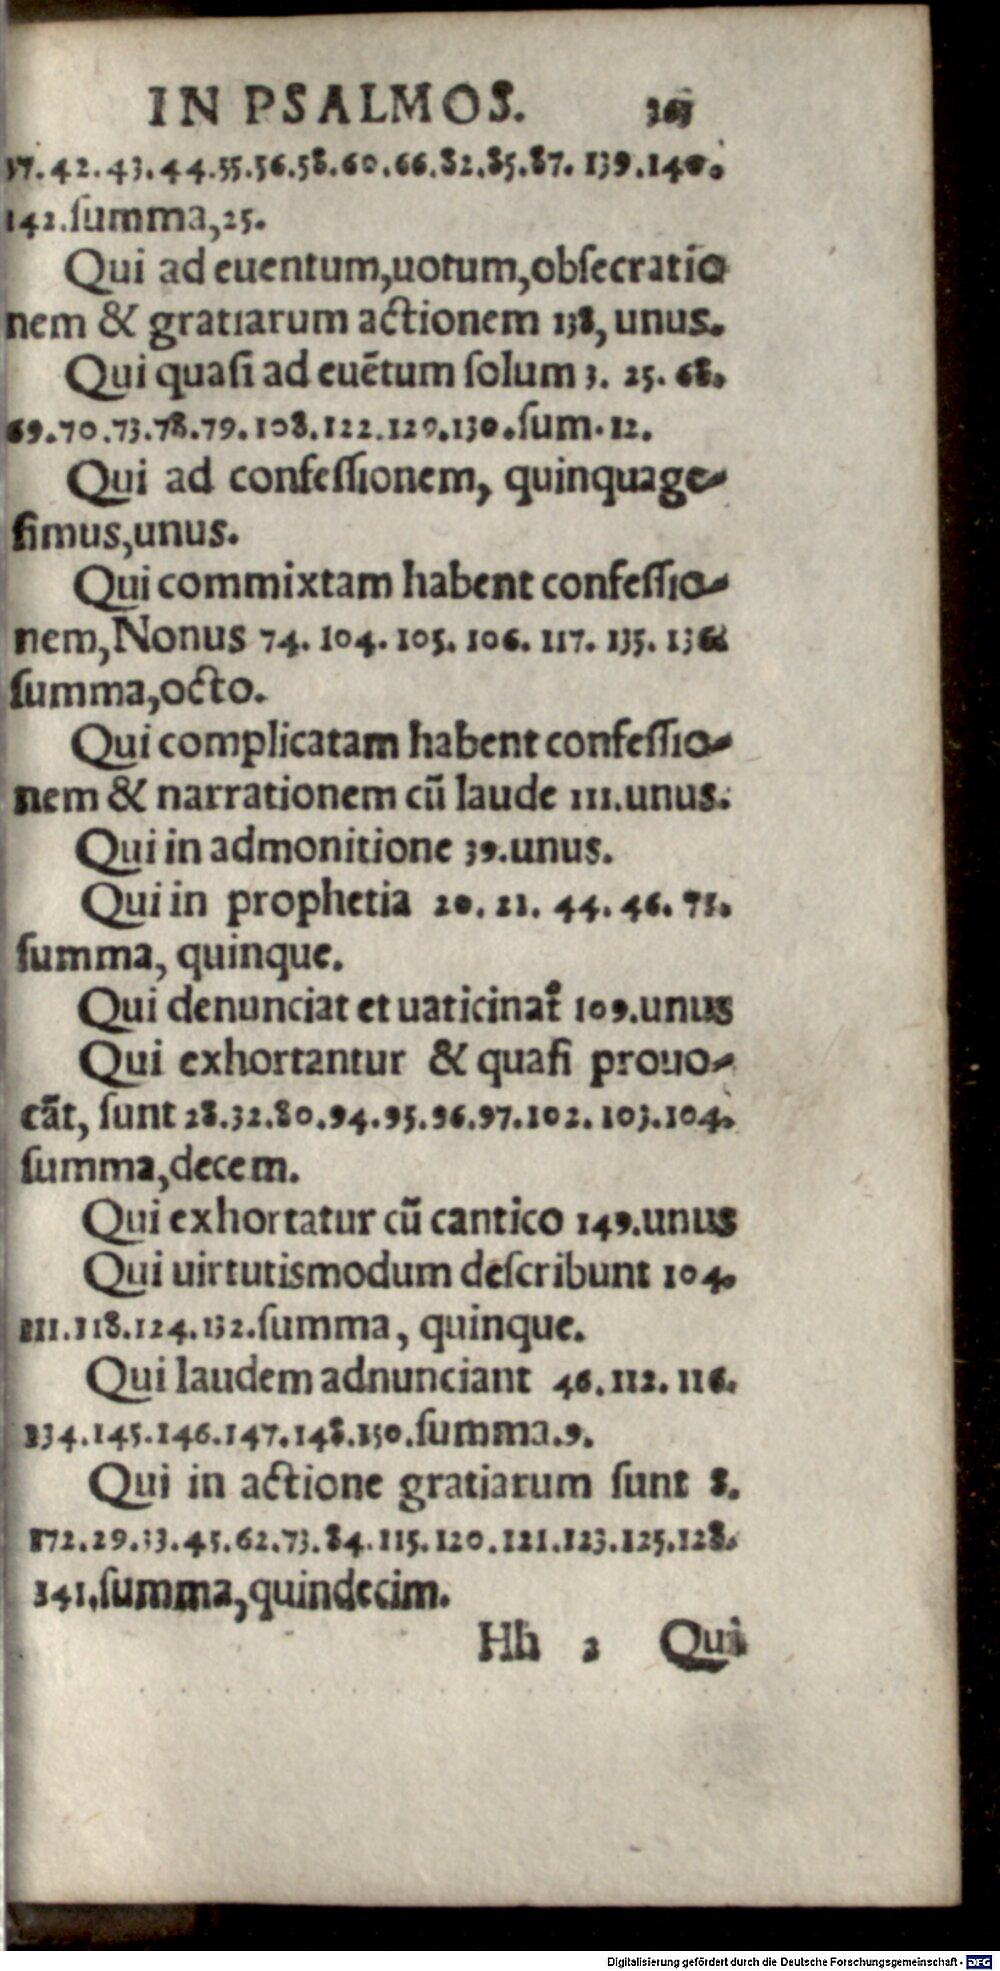 IN PSALMOS.
37.42.43.44.55.56.58.60.66.82.85.87.139.140.
142.ſumma,25.
Qui ad euentum,uotum,obſecratio
nem & gratiarum actionem 138, unus.
Qui quaſi ad euẽtum ſolum 3. 25. 68.
69.70.73.78.79.108.122.129.130.ſum.12.
Qui ad confeſſionem, quinquage-
ſimus,unus.
Qui commixtam habent confeſſio-
nem,Nonus 74. 104. 105. 106. 117. 135. 136.
ſumma,octo.
Qui complicatam habent confeſſio-
nem & narrationem cũ laude 111.unus.
Qui in admonitione 39.unus.
Qui in prophetia 20. 21. 44. 46. 71.
ſumma, quinque.
Qui denunciat et uaticinat᷒ 109.unus
Qui exhortantur & quaſi prouo-
cãt, ſunt 28.32.80.94.95.96.97.102.103.104.
ſumma,decem.
Qui exhortatur cũ cantico 149.unus
Qui uirtutismodum deſcribunt 104.
111.118.124.132.ſumma, quinque.
Qui laudem adnunciant 46.112.116.
134.145.146.147.148.150.ſumma.9.
Qui in actione gratiarum ſunt 8.
172.29.33.45.62.73.84.115.120.121.123.125.128.
141.ſumma,quindecim.
Hh 2 Qui
Digitalisierung gefördert durch die Deutsche Forschungsgemeinschaft - DFG